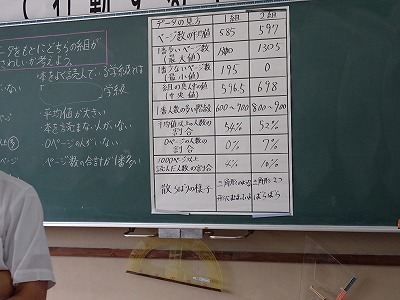 行動す
ータをもとにどちらの組が
さわしいか考えよう。
ない
本をよく読んでいる学級では
学級
平均値が大きい
本を読まない人がいない
0ページの人がいない
ページ数の合計が1番多い
ページ
データの見方 1組 2組
ページ数の平均値 585 597
1番多いページ数
(最大値) 1305
1番少ないページ数
(最小値) 195 0
組の真ん中の値
(中央値) 596.5 698
1番人数の多い階級 600~700 800~900
平均値以上の人数の
割合 54% 52%
0ページの人数の
割合 0% 7%
1000ページ以上
読んだ人数の割合 4% 10%
散らばりの様子 二つ
ばらばら